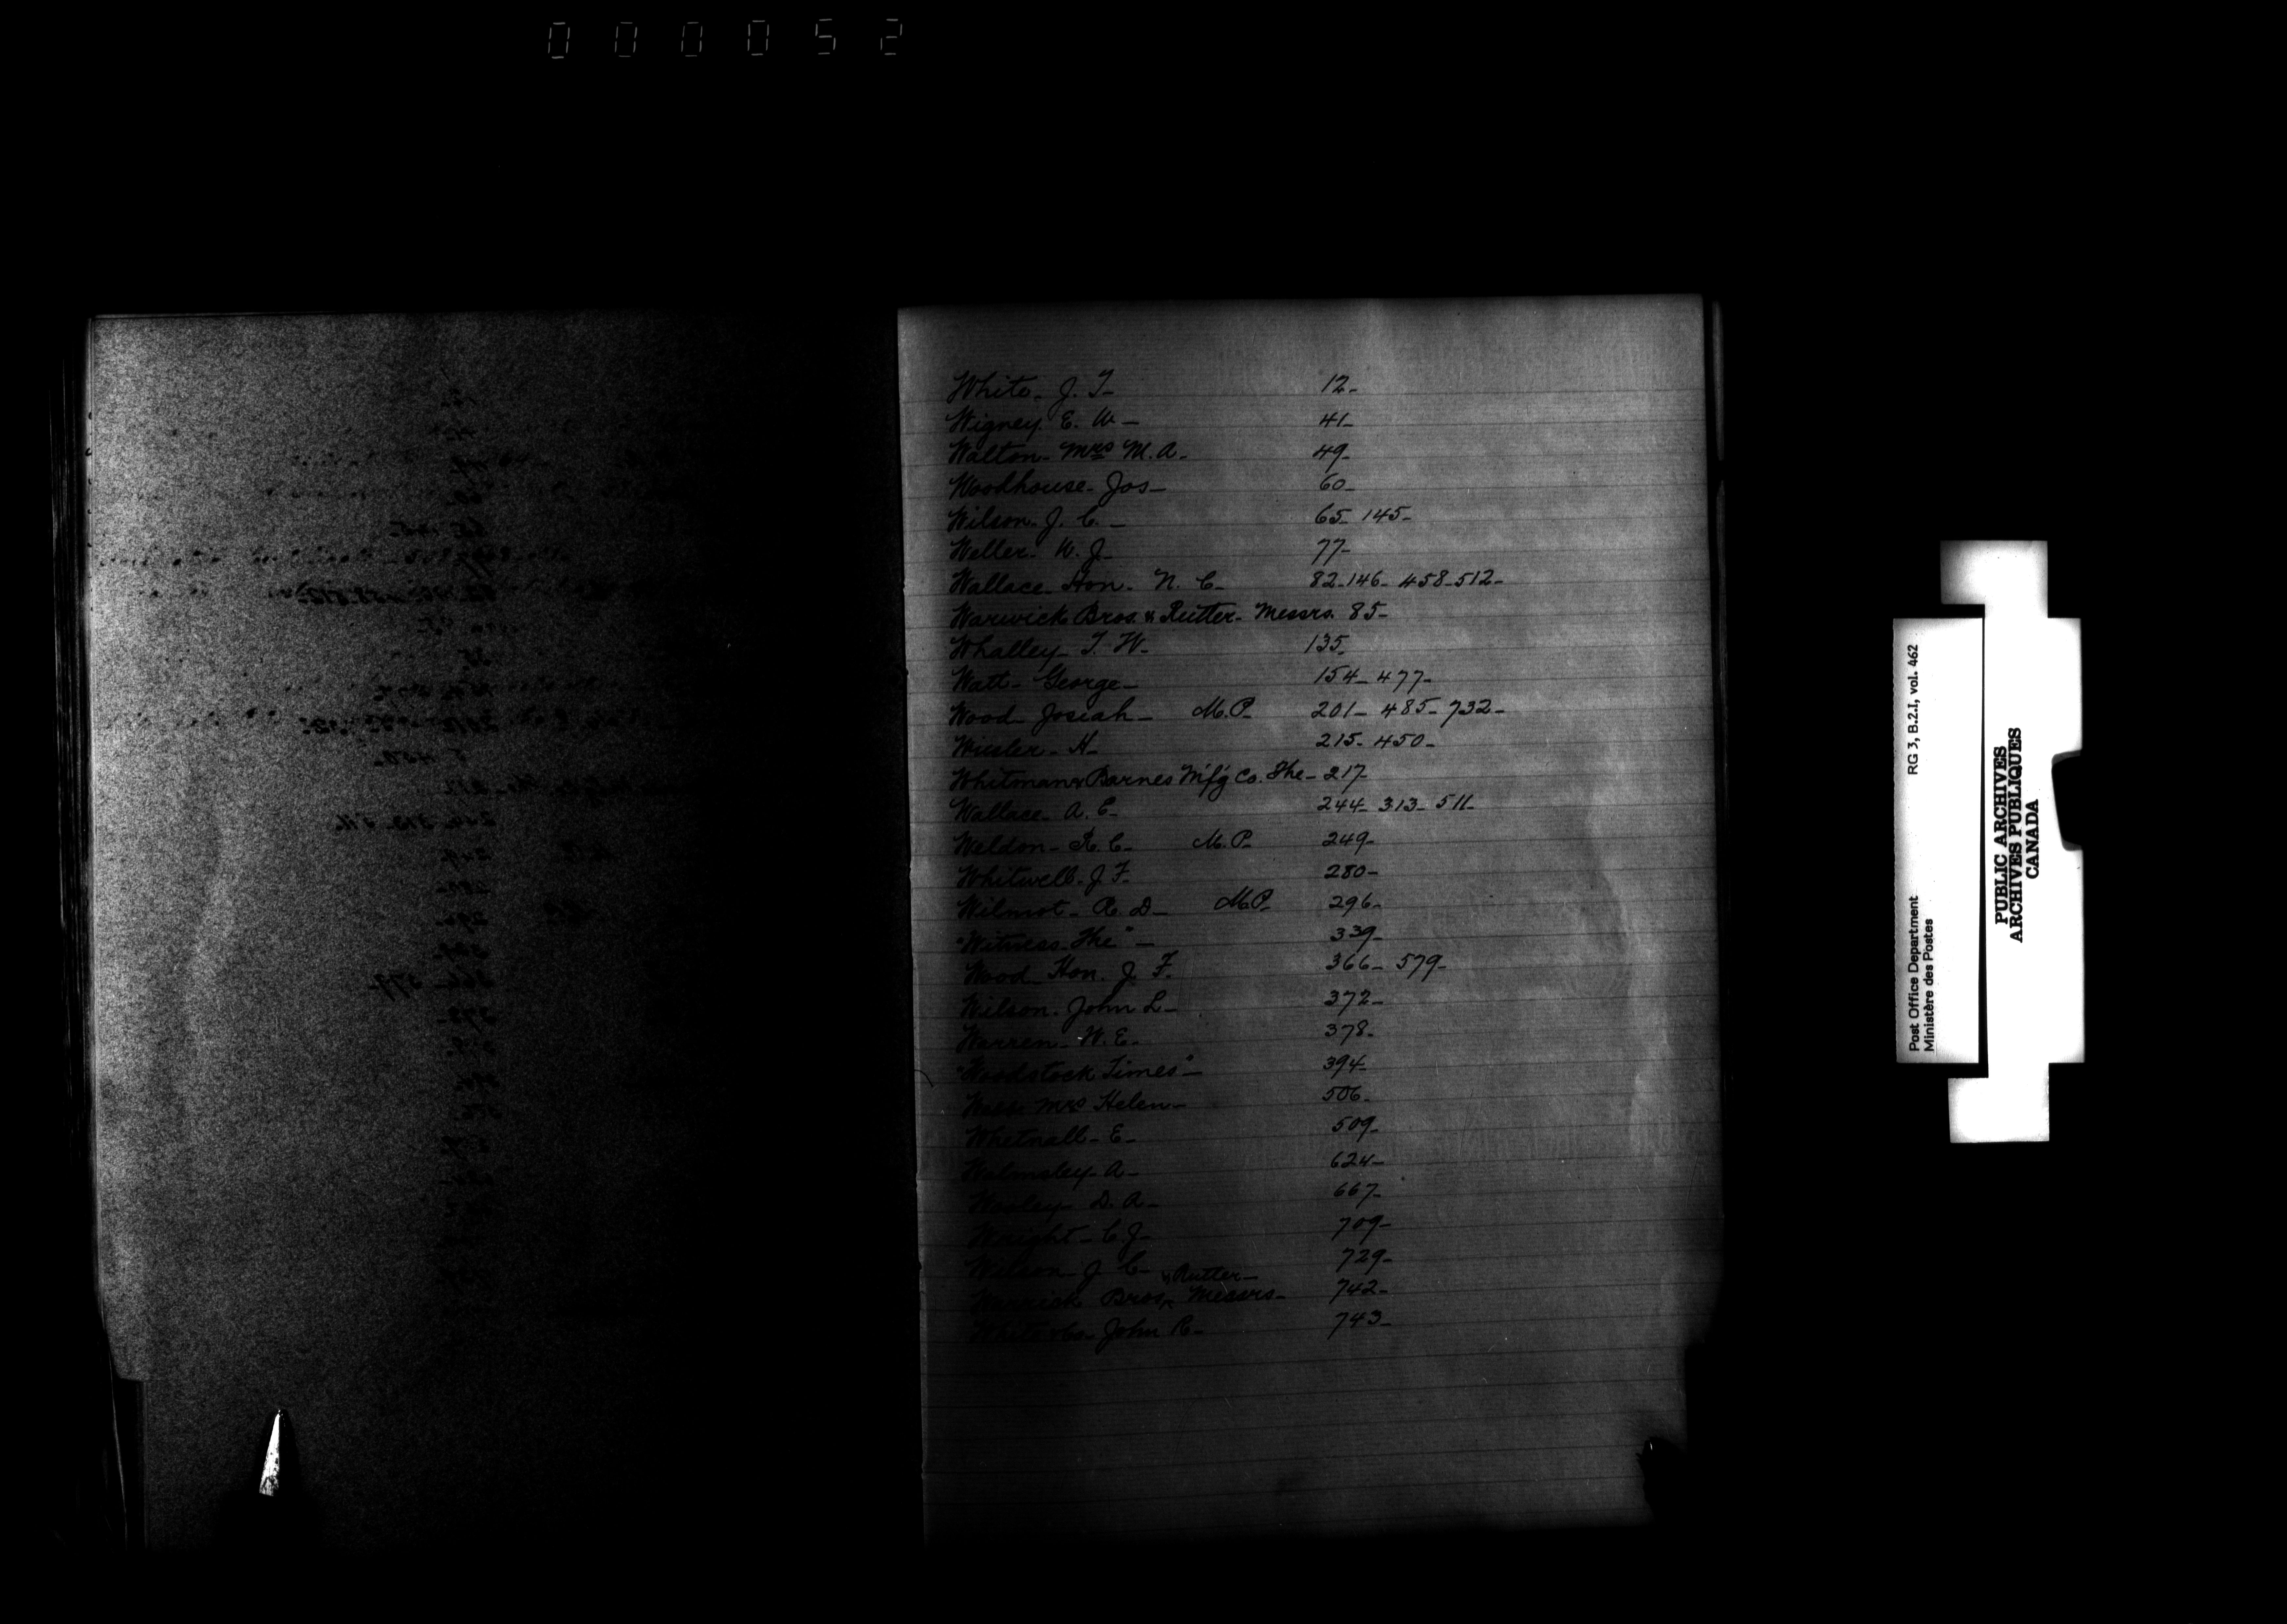 000052
White - J. T - 12 -
Wigney E. W - 41 -
Walton - Mrs M. A. - 49 -
Woodhouse - Jos - 60 -
Wilson - J. C. - 65 - 145 -
Weller - W. J - 77 -
Wallace - Hon - N. C - 82 - 146 - 458 - 512 -
Warwick Bros. & Rutter - Messrs. 85 -
Whalley - T. W - 135 -
Watt - George - 154 - 477 -
Wood - Josiah - M.P. 201 - 485 - 732 -
H - 215 - 450 -
Whitman & Barnes M'f'g Co. The - 217 -
Wallace - A. E - 244 - 313 - 511 -
Weldon - R. C - M.P. 249 -
Whitwell - J F - 280 -
Wilmot - R. D - M.P. 296 -
"Witness - The" - 339 -
Wood Hon. J. F. 366 - 579 -
Wilson - John L - 372 -
Warren - W. E - 378 -
"Woodstock Times" - 394 -
Mrs Helen - 506 -
Whetnall - E - 509 -
Walmsley - A - 624 -
Wooley - D. A - 667 -
Wright - C. J - 709 -
Wilson - J C - 729 -
& Rutter -
Warwick Bros, Messrs - 742 -
John R - 743 -
Post Office Department RG 3, B.2.I, vol. 462
Ministère des Postes
PUBLIC ARCHIVES
ARCHIVES PUBLIQUES
CANADA